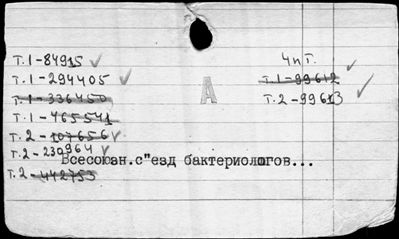 Т.1-84915
Т.1-294405
Т.1-336450
Т.1-465541
Т.2-107656
Т.2-230964
Т.2-442753
4 п Т.
Т.1-99612
Т.2-99613
А
Всесоюзн.с"езд бактериологов...